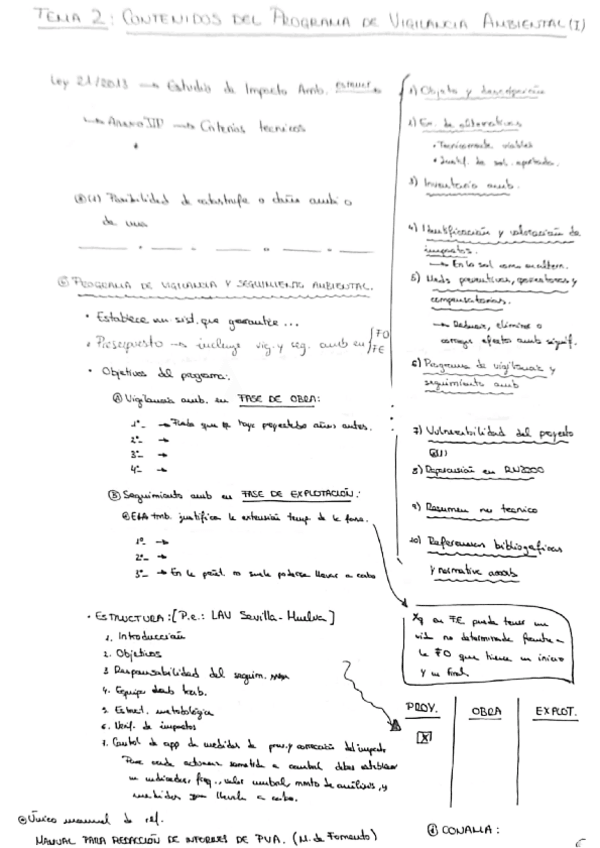 TEMA 2: CONTENIDOS DEL PROGRAMA DE VIGILANCIA AMBIENTAL (I)
Ley 21/2013 → Estudio de Impacto Amb.
→ Anexo → Criterios tecnicos
Posibilidad de catastrofe o daño amb o
de una
© PROGRAMA DE VIGILANCIA Y SEGUIMIENTO AMBIENTAL.
• Establece un sist. que garantice ...
• Presupuesto → incluye vig. y seg. amb en FO
FE
• Objetivos del programa:
Ⓐ Vigilancia amb. en FASE DE OBRA:
1º_ → que haya proyectados años antes.
2º_ →
3º_ →
4º_ →
Ⓑ Seguimiento amb en FASE DE EXPLOTACIÓN:
EIA tmb. justifica la extension temp de la fase.
1º_ →
2º_ →
3º_ → En la pract. no suele poderse llevar a cabo
• ESTRUCTURA: [P.e.: LAV Sevilla-Huelva]
1. Introducción
2. Objetivos
3. Responsabilidad del seguim.
4. Equipo de trab.
5. metodológica
6. Verif. de impactos
7. Control de app de medidas de prev. y corrección del impacto
Para cada actuacion sometida a control debes establecer
un indicador, freq., valor umbral, mnto de análisis, y
medidas que llevarla a cabo.
Único manual de ref.
MANUAL PARA REDACCIÓN DE INFORMES DE PVA. (M. de Fomento)
1) Objeto y descripción
2) Ex. de alternativas
• Tecnicamente viables
• Justif. de sol. aportada.
3) Inventario amb.
4) Identificación y valoración de
impactos.
→ En la sol como en altern.
5) Meds preventivas, correctoras y
compensatorias.
→ Reducir, elimine o
corrige efectos amb signif.
6) Programa de vigilancia y
seguimiento amb
7) Vulnerabilidad del proyecto
8) Repercusión en RN2000
9) Resumen no tecnico
10) Referencias bibliográficas
y normativa amb
Xq en FE puede tener un
vida no determinada frente a
la FO que tiene un inicio
y un final.
PROY. OBRA EXPLOT.
X
CONAMA: